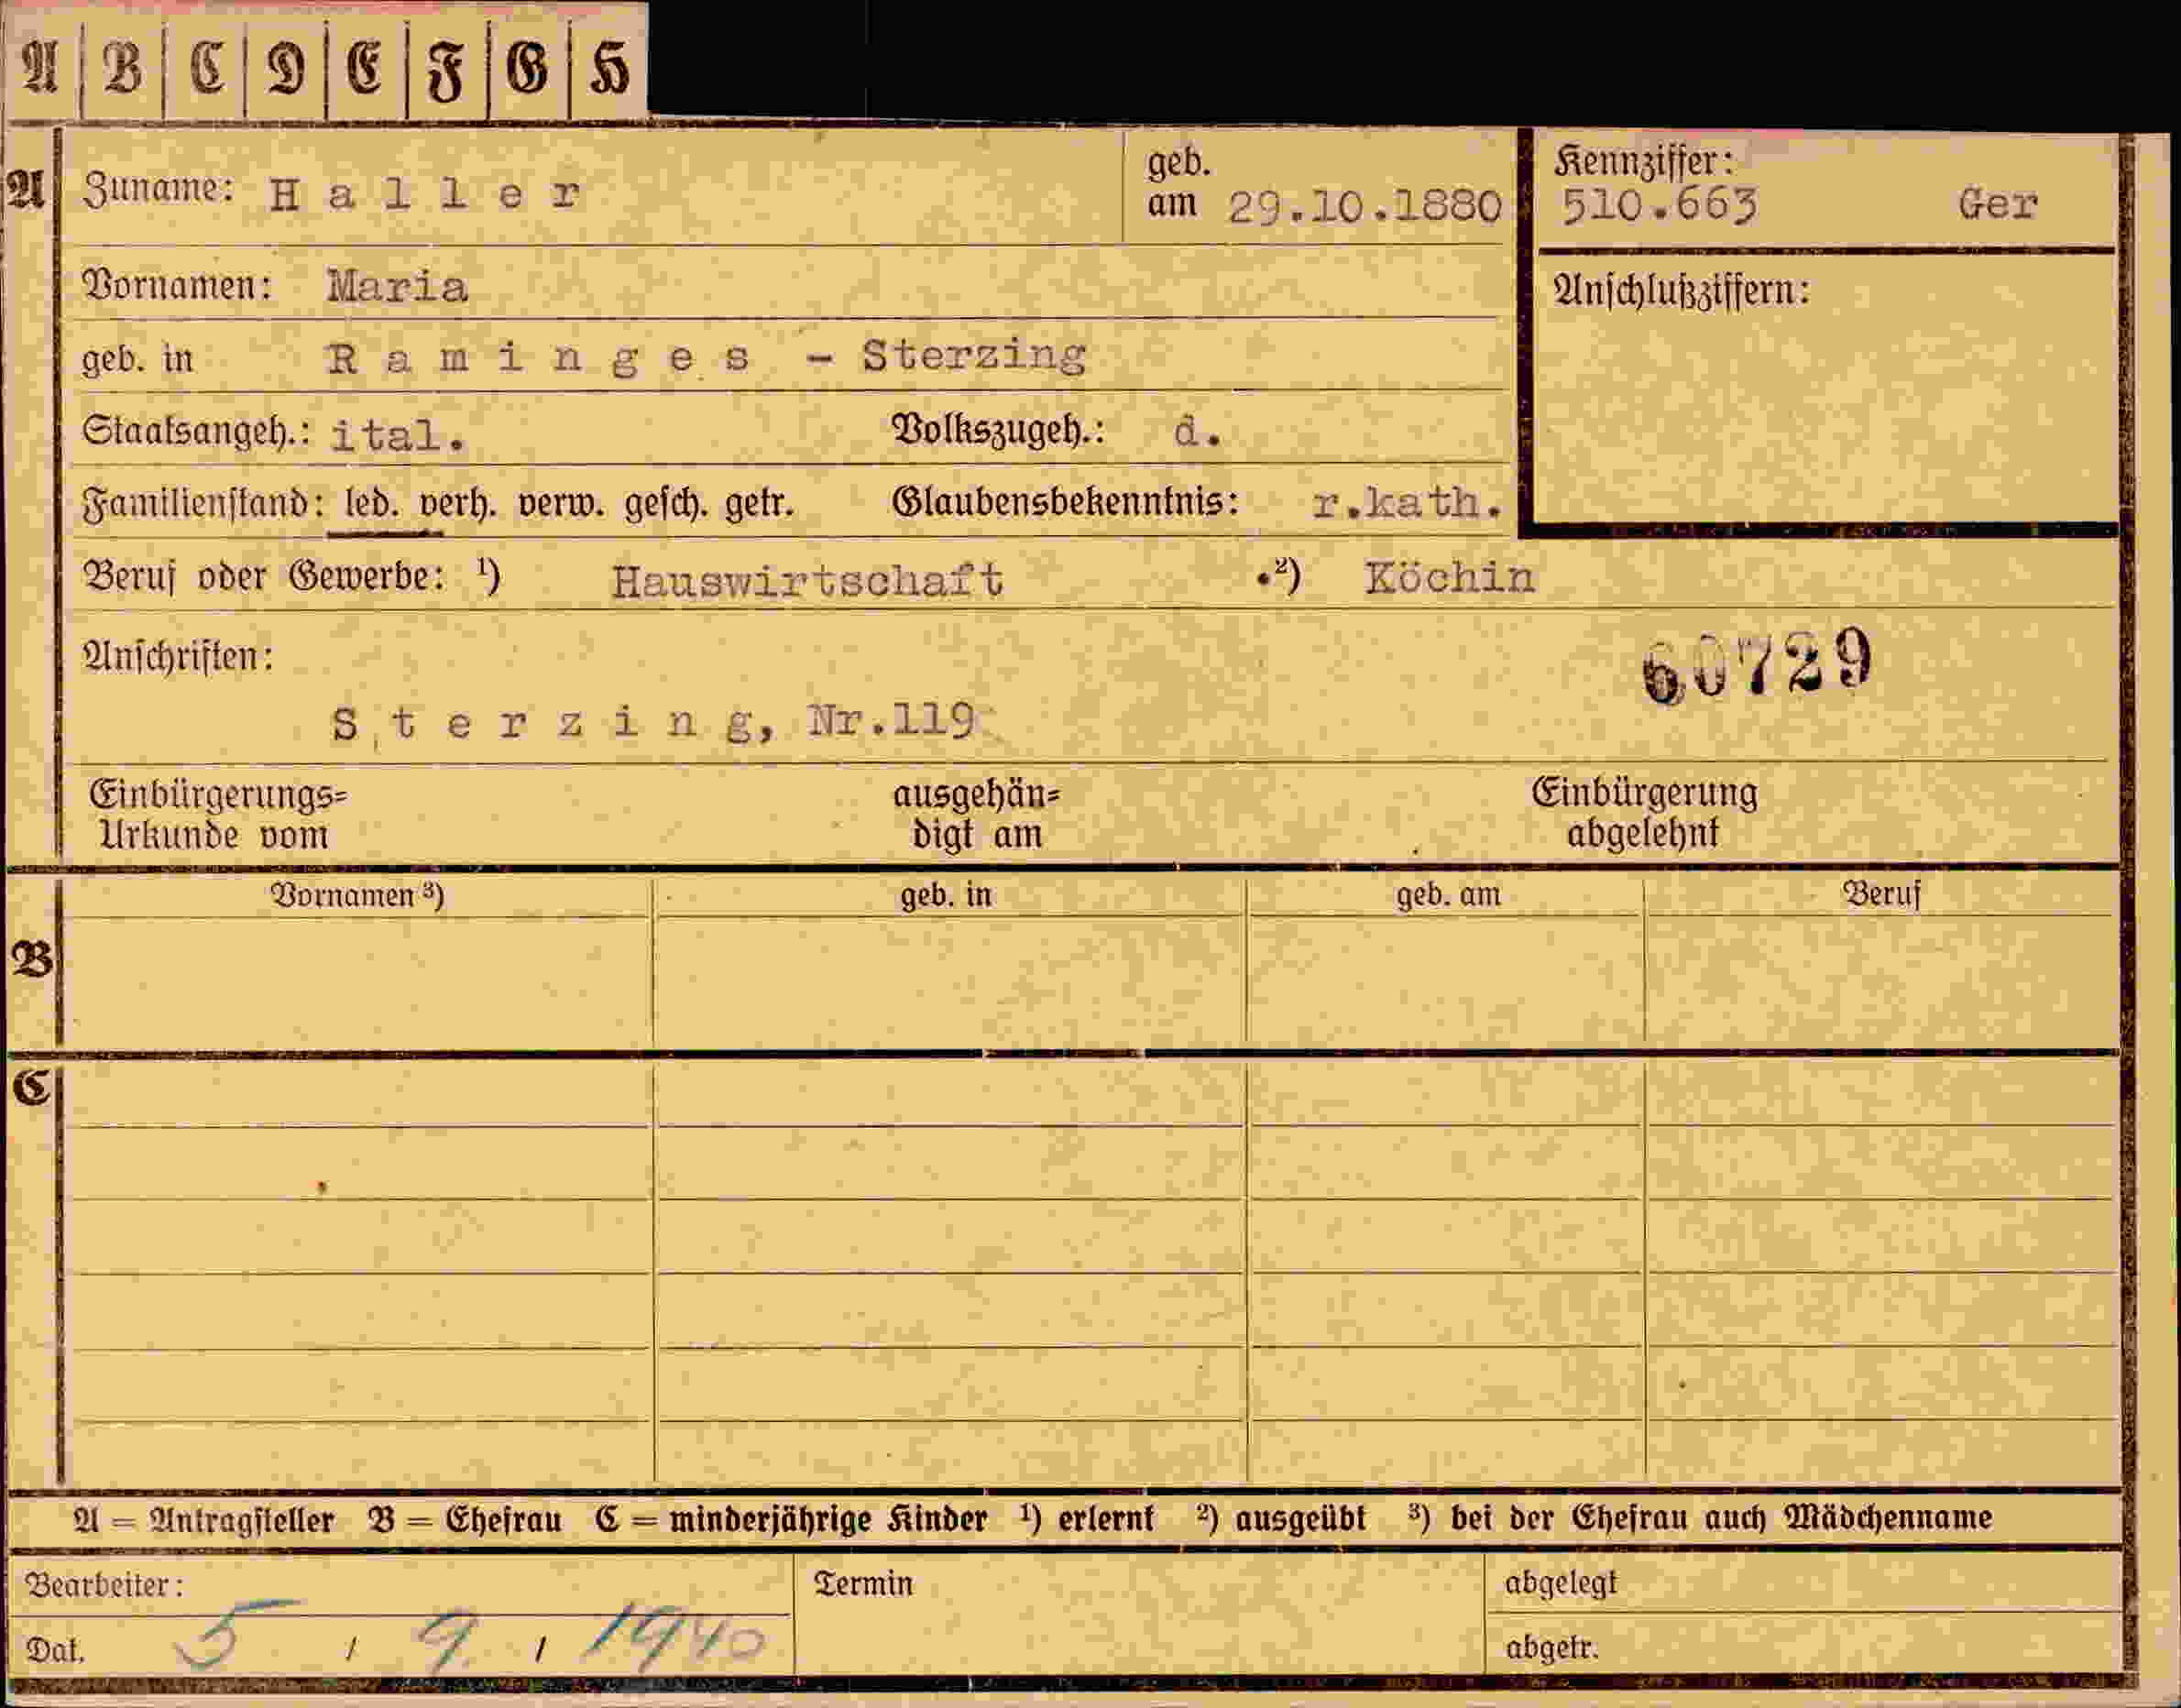 A B C D E F G H
A Zuname: Haller geb. am 29.10.1880 Kennziffer: 510.663 Ger
Vornamen: Maria Anschlußziffern:
geb. in Raminges - Sterzing
Staatsangeh.: ital. Volkszugeh.: d.
Familienstand: led. verh. verw. gesch. getr. Glaubensbekenntnis: r.kath.
Beruf oder Gewerbe: ¹) Hauswirtschaft ²) Köchin
Anschriften: 60729
Sterzing, Nr.119
Einbürgerungs= ausgehän= Einbürgerung
Urkunde vom digt am abgelehnt
Vornamen ³) geb. in geb. am Beruf
B
C
A = Antragsteller B = Ehefrau C = minderjährige Kinder ¹) erlernt ²) ausgeübt ³) bei der Ehefrau auch Mädchenname
Bearbeiter: Termin abgelegt
Dat. 5 / 9. / 1940 abgetr.